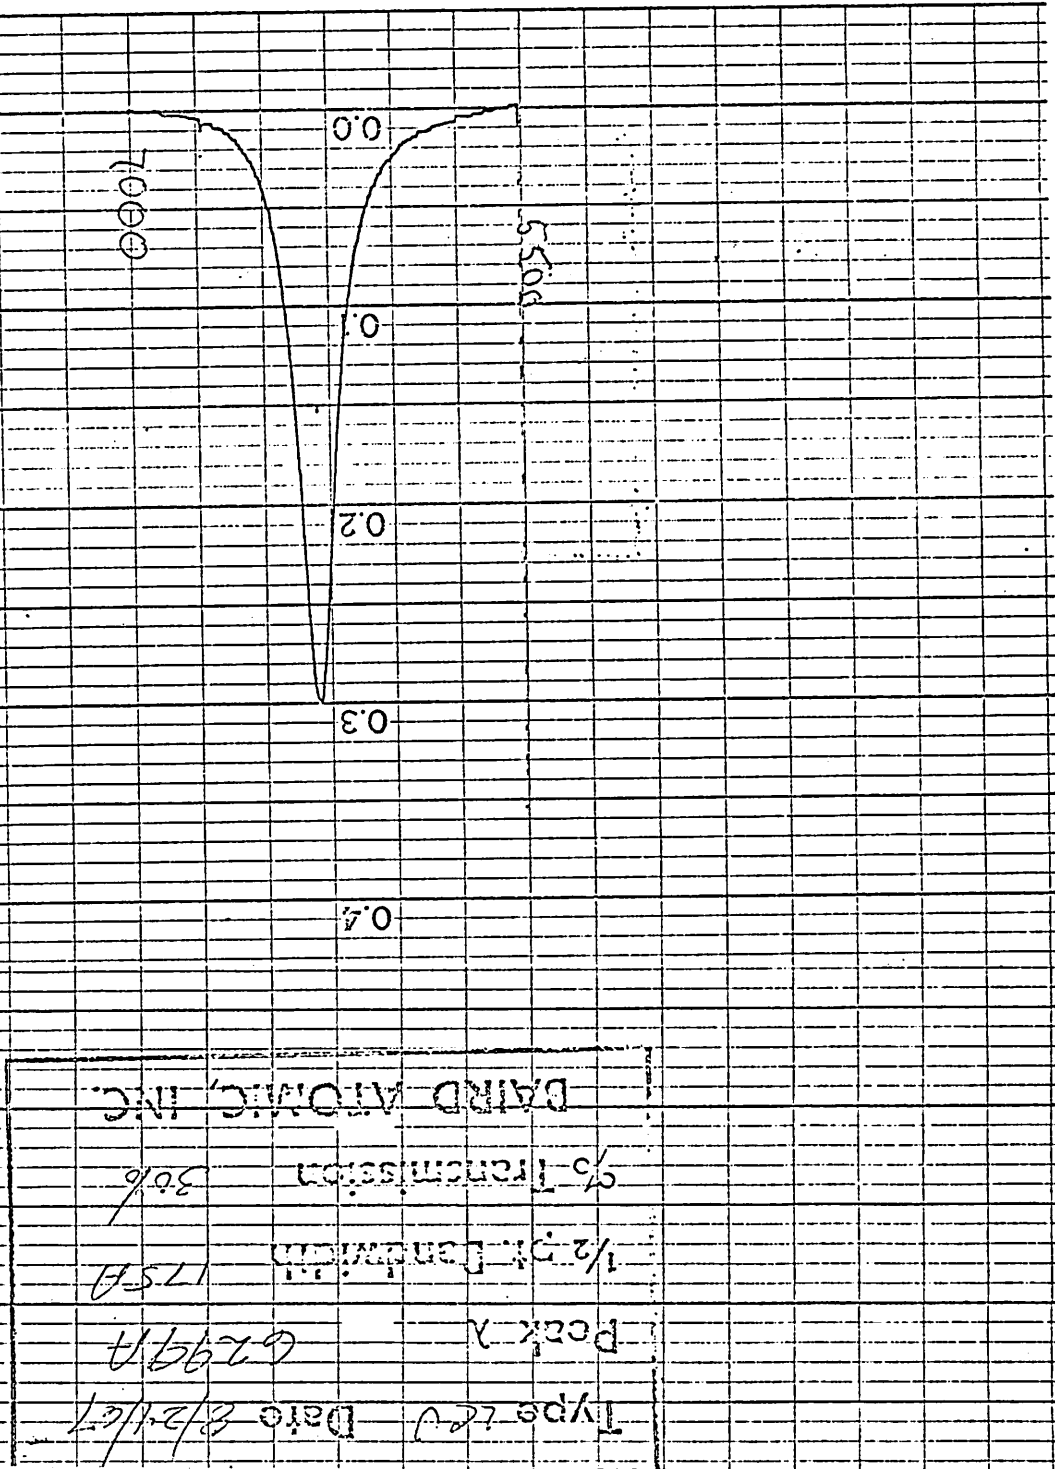 Type Date 8/24/67
Peak λ 6299A
1/2 pk Bandwidth 175A
% Transmission 30%
BAIRD ATOMIC, INC.
0.4
0.3
0.2
0.1
0.0
5500
7000